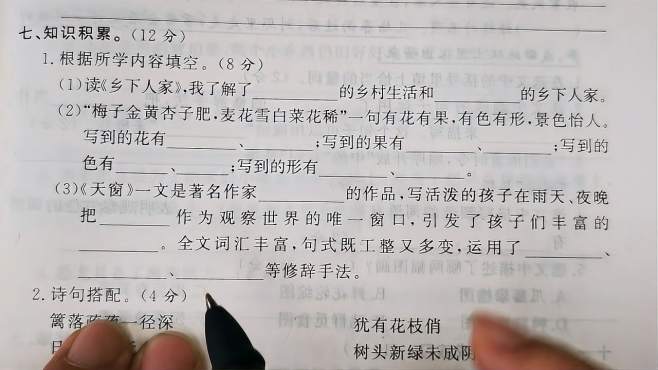 七、知识积累。(12 分)
1. 根据所学内容填空。(8 分)
(1)读《乡下人家》,我了解了________的乡村生活和________的乡下人家。
(2)“梅子金黄杏子肥,麦花雪白菜花稀”一句有花有果,有色有形,景色怡人。
写到的花有______、______;写到的果有______、______;写到的
色有______、______;写到的形有______、______。
(3)《天窗》一文是著名作家________的作品,写活泼的孩子在雨天、夜晚
把________作为观察世界的唯一窗口,引发了孩子们丰富的
________。全文词汇丰富,句式既工整又多变,运用了________、
________、________等修辞手法。
2. 诗句搭配。(4 分)
篱落疏疏一径深 犹有花枝俏
树头新绿未成阴